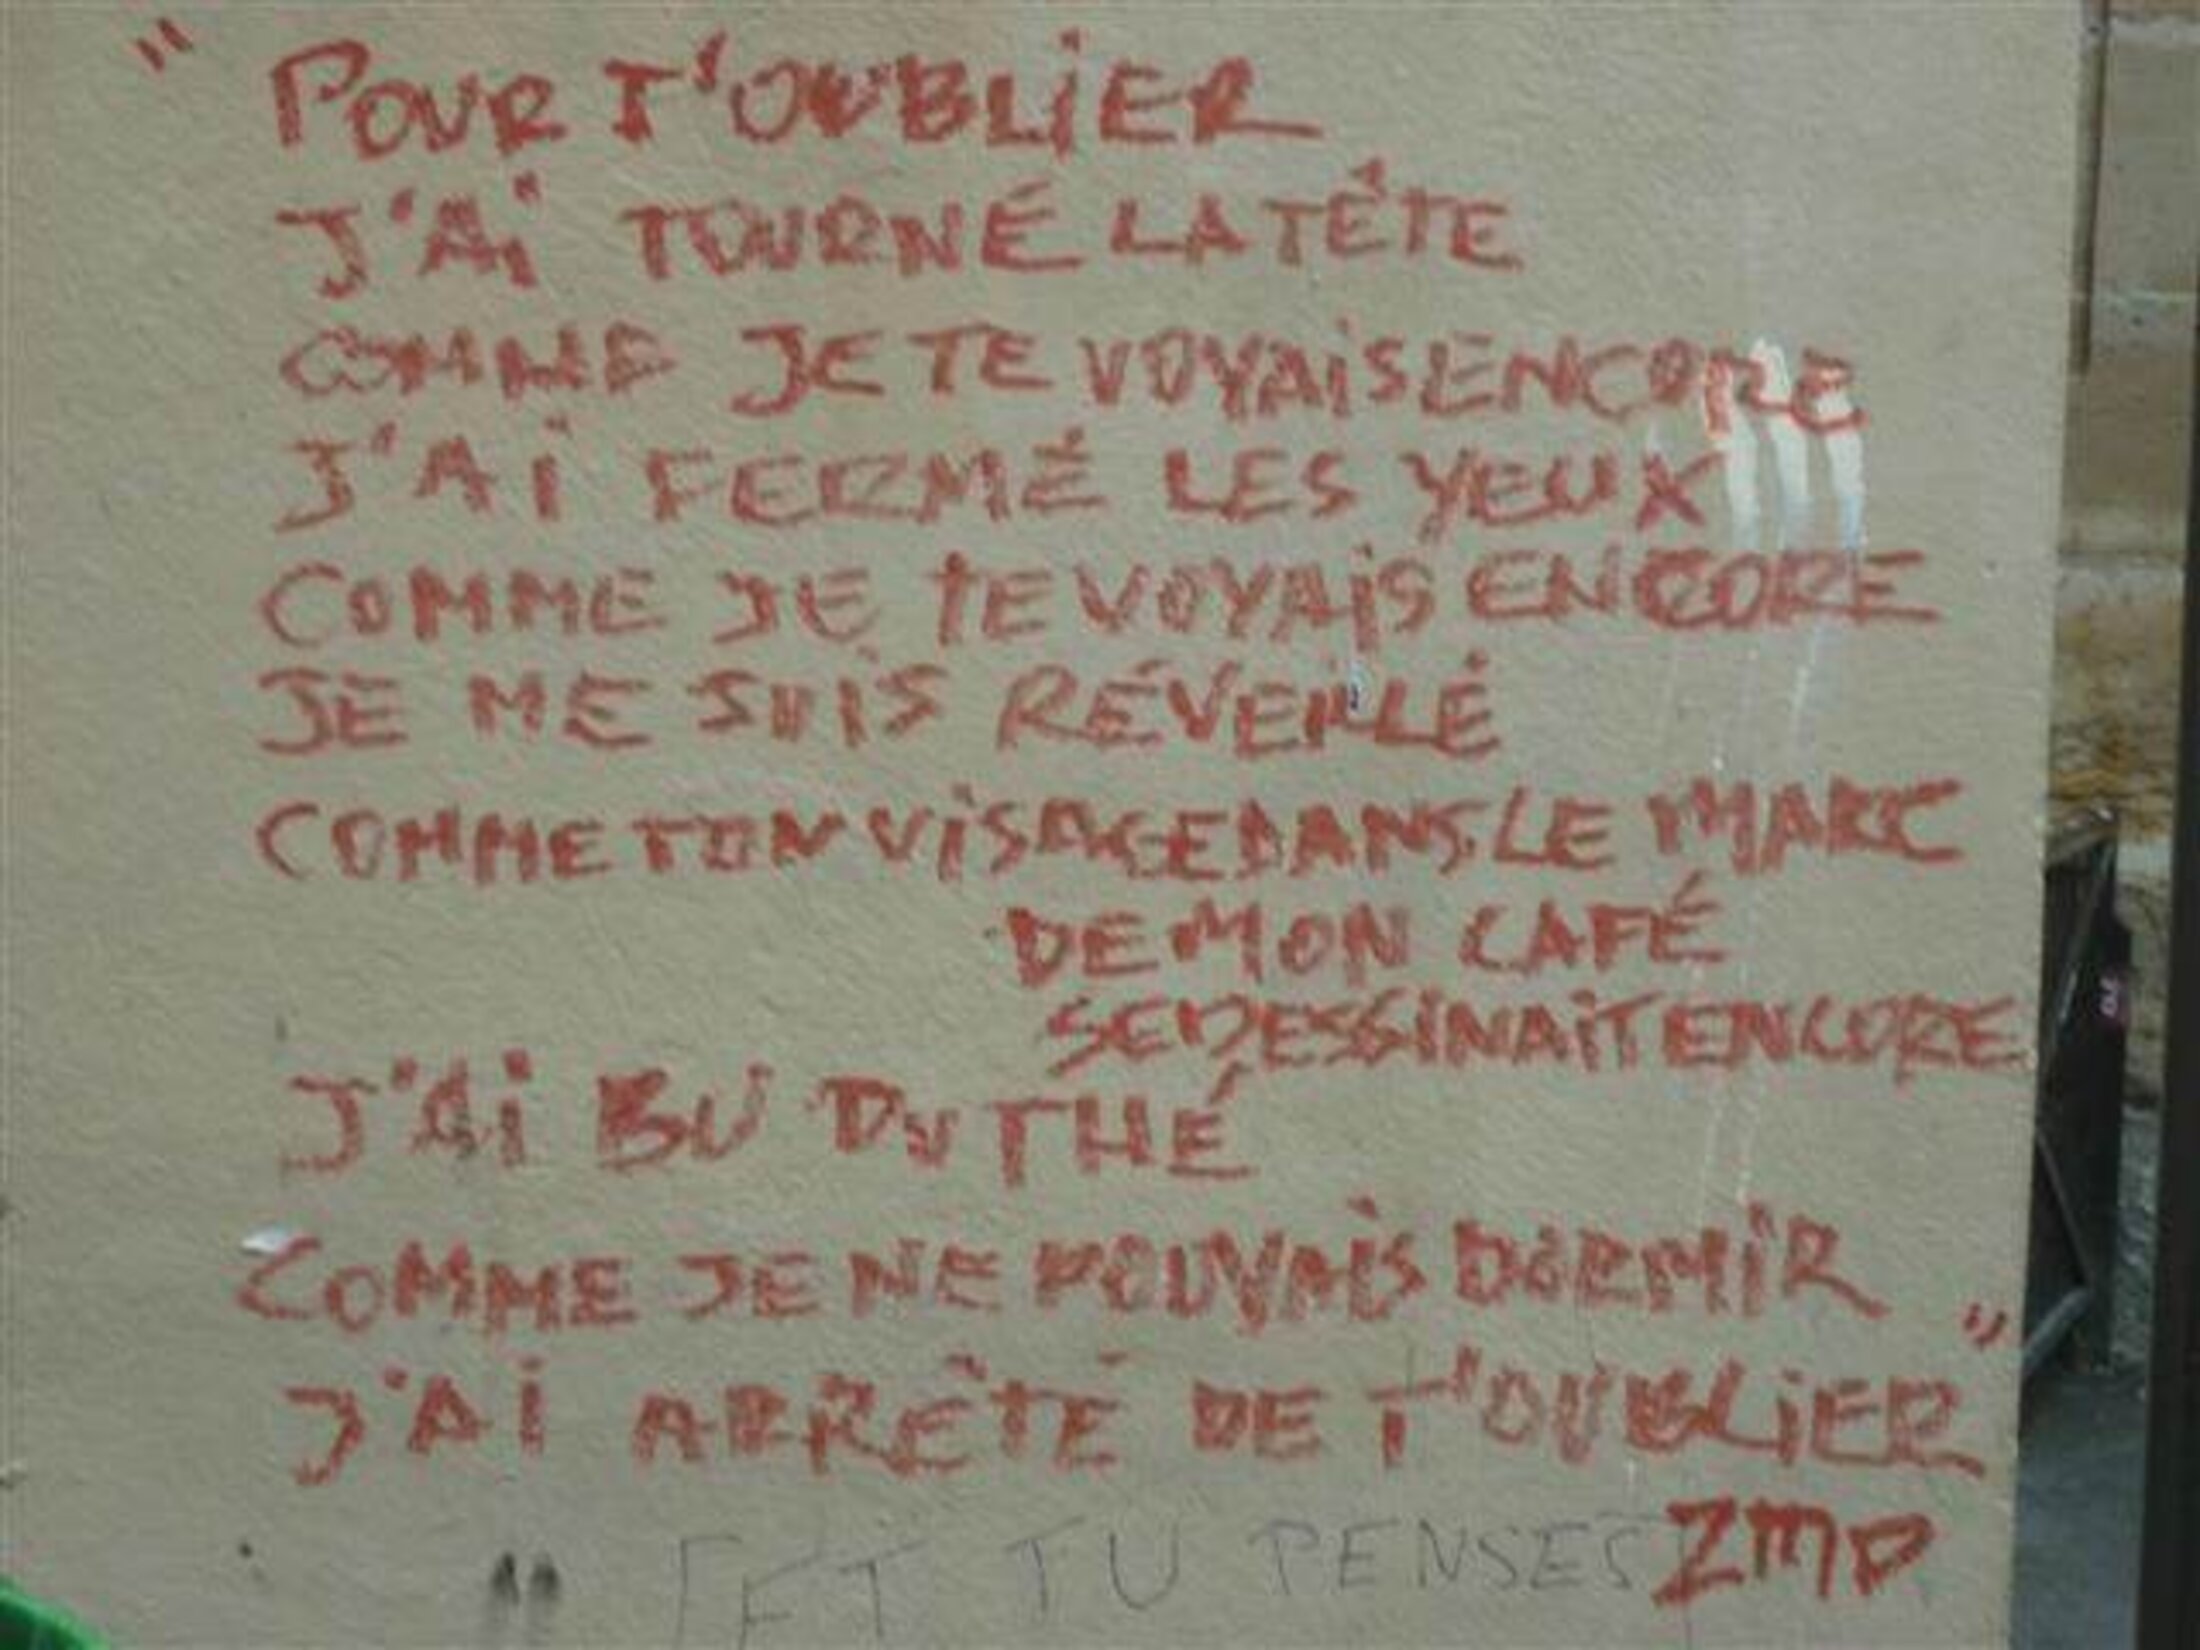 " POUR T'OUBLiER
J'Ai TOURNÉ LA TÊTE
COMME JE TE VOYAiS ENCORE
J'Ai FERMÉ LES YEUX
COMME JE TE VOYAiS ENCORE
JE ME SUiS RÉVEiLLÉ
COMME TON ViSAGE DANS LE MARC
DE MON CAFÉ
SE DESSiNAiT ENCORE
J'Ai BU DU THÉ
COMME JE NE POUVAiS DORMiR
J'Ai ARRÊTÉ DE T'OUBLiER "
ZMP
" ET TU PENSES